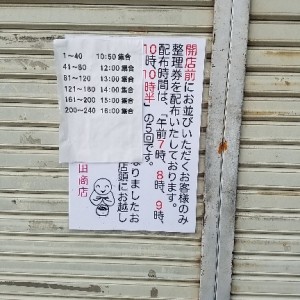 1~40 10:50 集合
41~80 12:00 集合
81~120 13:00 集合
121~160 14:00 集合
161~200 15:00 集合
200~240 16:00 集合
開店前にお並びいただくお客様のみ
整理券を配布いたしております。
配布時間は、「午前7時、8時、9時、
10時、10時半」の5回です。
なりましたお
店頭にお越し
田商店